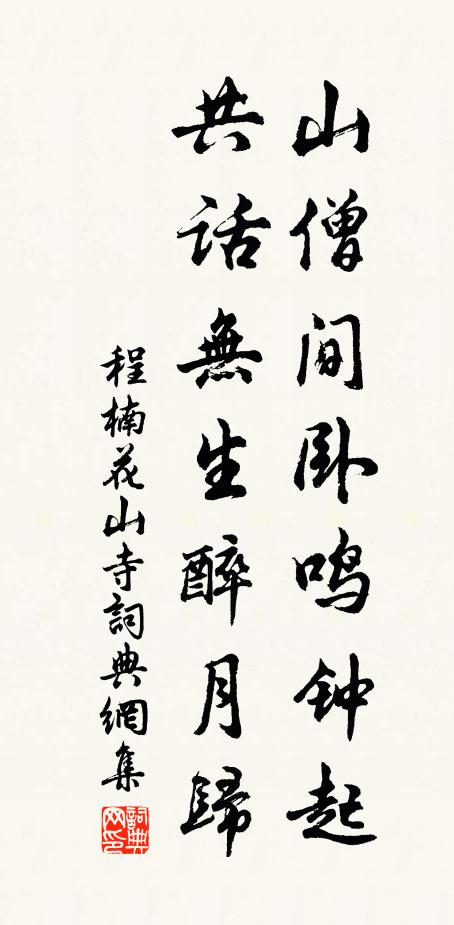 山僧间卧鸣钟起
共话無生醉月歸
程楠花山寺詞典網集
詞典网印